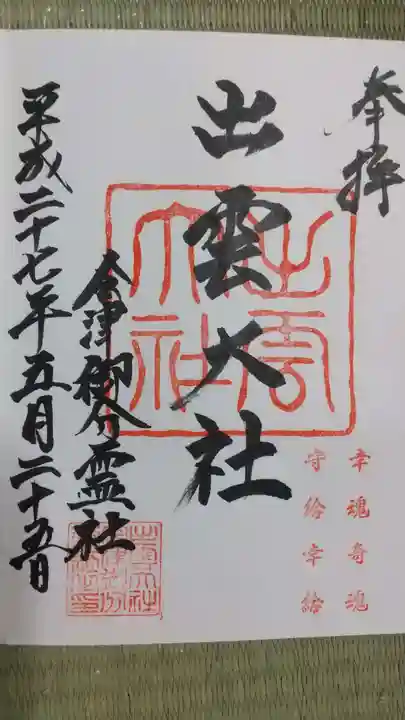 奉拝
幸魂奇魂
守給幸給
出雲大社
出雲大社
会津御分霊社
平成二十七年五月二十五日